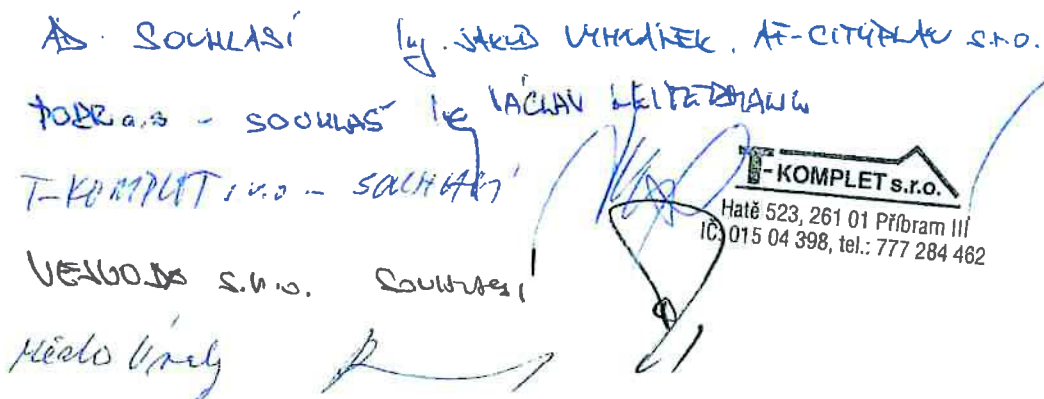 AD. SOUHLASÍ Ing. JAKUB VYHNÁNEK, AF-CITYPLAN s.r.o.
a.s - SOUHLASÍ Ing VÁCLAV
T-KOMPLET s.r.o - SOUHLASÍ
T-KOMPLET s.r.o.
Hatě 523, 261 01 Příbram III
IČ: 015 04 398, tel.: 777 284 462
s.r.o. SOUHLASÍ
Město